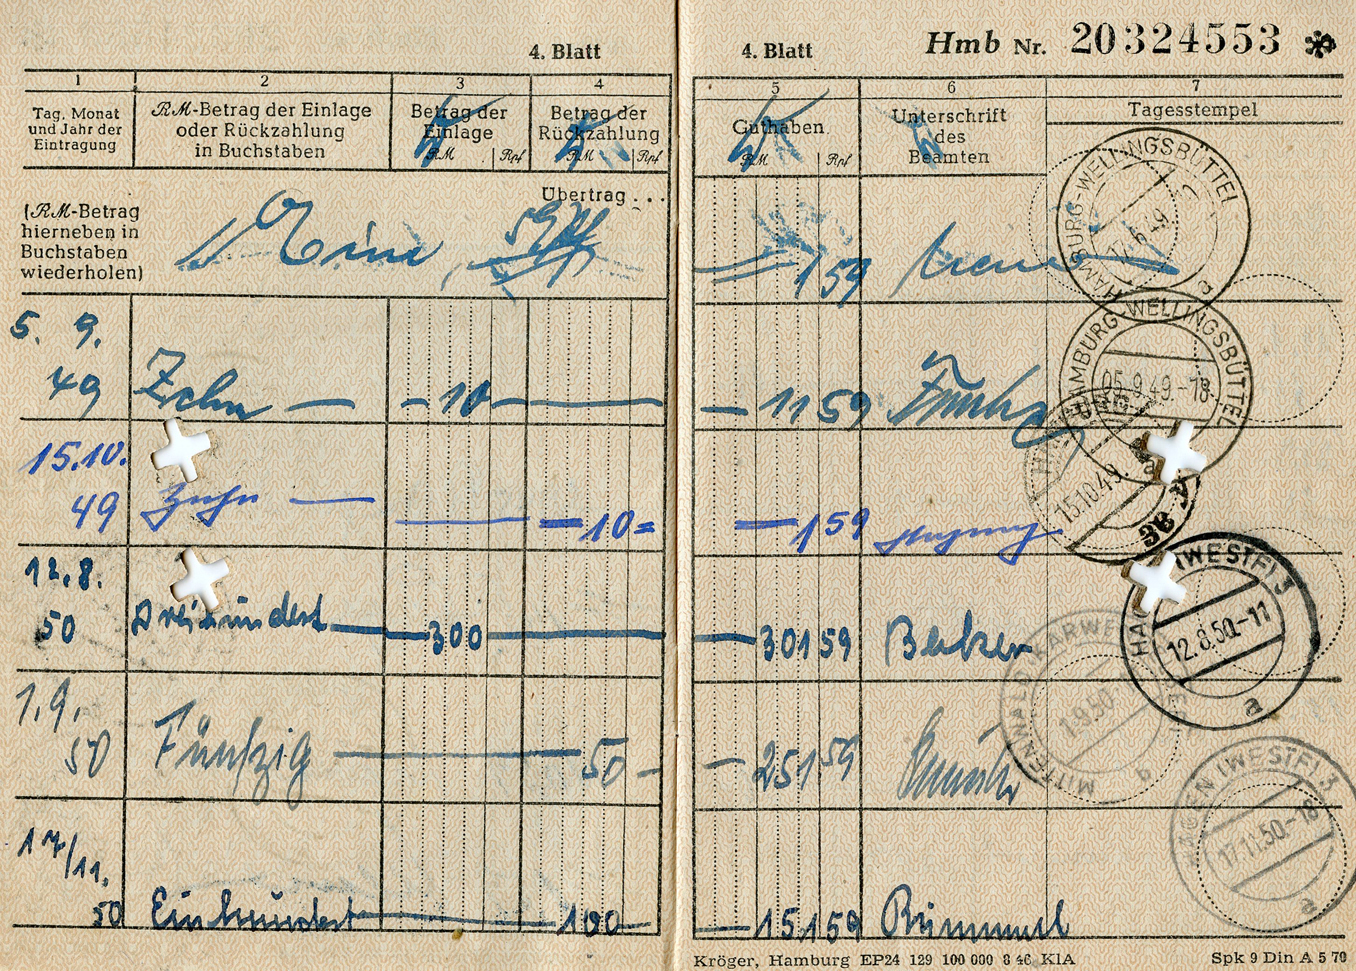 4. Blatt
4. Blatt
Hmb Nr. 20324553
1 2 3 4
5 6 7
Tag, Monat und Jahr der Eintragung
RM-Betrag der Einlage oder Rückzahlung in Buchstaben
Betrag der Einlage
RM Rpf
Betrag der Rückzahlung
RM Rpf
Guthaben
RM Rpf
Unterschrift des Beamten
Tagesstempel
Übertrag . . .
(RM-Betrag hierneben in Buchstaben wiederholen)
Eine 59
1 59
HAMBURG-WELLINGSBÜTTEL
6.49
a
5. 9. 49
Zehn — — 10 —
— 11 59
HAMBURG-WELLINGSBÜTTEL
05.9.49.-18
a
15.10. 49
Zehn — — 10 =
— 1 59
15.10.49.
12.8. 50
Dreihundert — 300 —
— 301 59
HAGEN (WESTF) 3
12.8.50.-11
a
1.9. 50
Fünfzig — 50 —
— 251 59
MITTENWALD (KARWE
1.9.50
b
17/11. 50
Einhundert — 100 —
— 151 59
HAGEN (WESTF) 3
17.11.50.-18
a
Kröger, Hamburg EP24 129 100 000 8 46 KlA
Spk 9 Din A 5 70